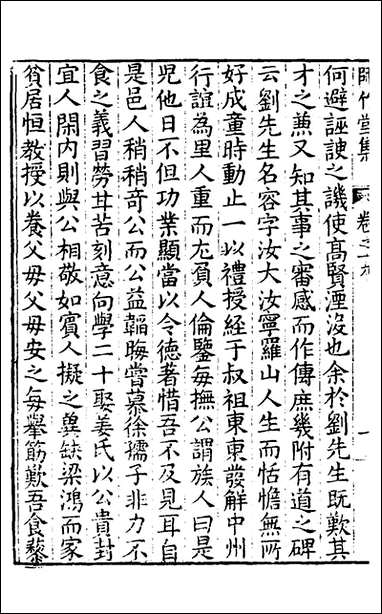 何避誣諛之譏使高賢湮沒也余於劉先生既歎其
才之兼又知其事之審感而作傳庶幾附有道之碑
云劉先生名容字汝大汝寧羅山人生而恬憺無所
好成童時動止一以禮授經于叔祖東東發解中州
行誼為里人重而尤負人倫鑒每撫公謂族人曰是
児他日不但功業顯當以令德著惜吾不及見耳自
是邑人稍稍奇公而公益韜晦嘗慕徐孺子非力不
食之義習勞甘苦刻意向學二十娶姜氏以公貴封
宜人閑內則與公相敬如賓人擬之兾缺梁鴻而家
貧居恒教授以養父母父母安之每舉筯歎吾食藜